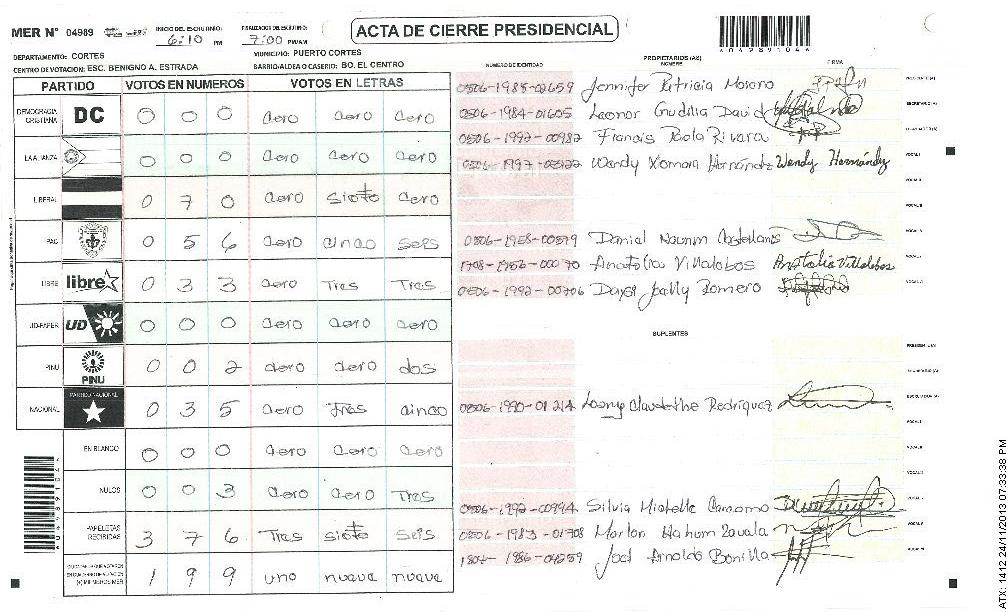 MER N° 04989 INICIO DEL ESCRUTINIO: 6:10 PM FINALIZACION DEL ESCRUTINIO: 7:00 PM/AM
ACTA DE CIERRE PRESIDENCIAL
DEPARTAMENTO: CORTES MUNICIPIO: PUERTO CORTES
CENTRO DE VOTACION: ESC. BENIGNO A. ESTRADA BARRIO/ALDEA O CASERIO: BO. EL CENTRO
PARTIDO VOTOS EN NUMEROS VOTOS EN LETRAS
DEMOCRACIA CRISTIANA DC 0 0 0 cero cero cero
LA ALIANZA 0 0 0 cero cero cero
LIBERAL 0 7 0 cero siete cero
PAC 0 5 6 cero cinco seis
LIBRE libre 0 3 3 cero Tres Tres
UD-FAPER UD 0 0 0 cero cero cero
PINU PINU 0 0 2 cero cero dos
NACIONAL PARTIDO NACIONAL 0 3 5 cero Tres cinco
EN BLANCO 0 0 0 cero cero cero
NULOS 0 0 3 cero cero Tres
PAPELETAS RECIBIDAS 3 7 6 Tres siete seis
1 9 9 uno nueve nueve
NUMERO DE IDENTIDAD PROPIETARIOS (AS) NOMBRE FIRMA
0506-1985-02659 Jennifer Patricia Moreno
0506-1984-01605 Leonor Gudilia David
0506-1992-00982 Francis Paola Rivera
Wendy Xomara Hernández Wendy Hernández
Daniel Naumn Castellanos
Anatolia Villalobos Anatolia Villalobos
0506-1992-00706 Romero
SUPLENTES
0506-1990-01214 Rodriguez
0506-1992-00994 Silvia Michelle
0506-1983-01708 Marlon Nahum Zavala
Joel Arnoldo Bonilla
ATX: 1412 24/11/2013 07:33:38 PM